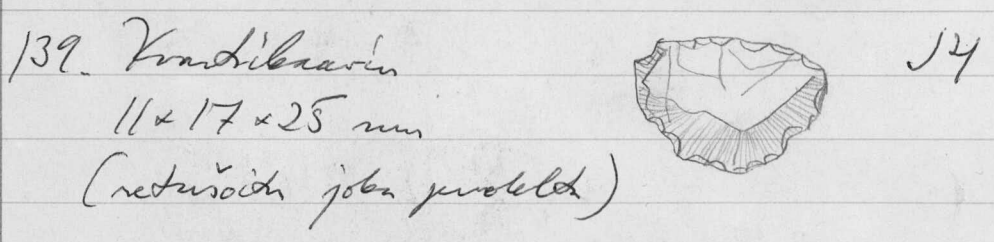 139. Kvartsikaavin
11 x 17 x 25 mm
(retušoitu joka puolelta)